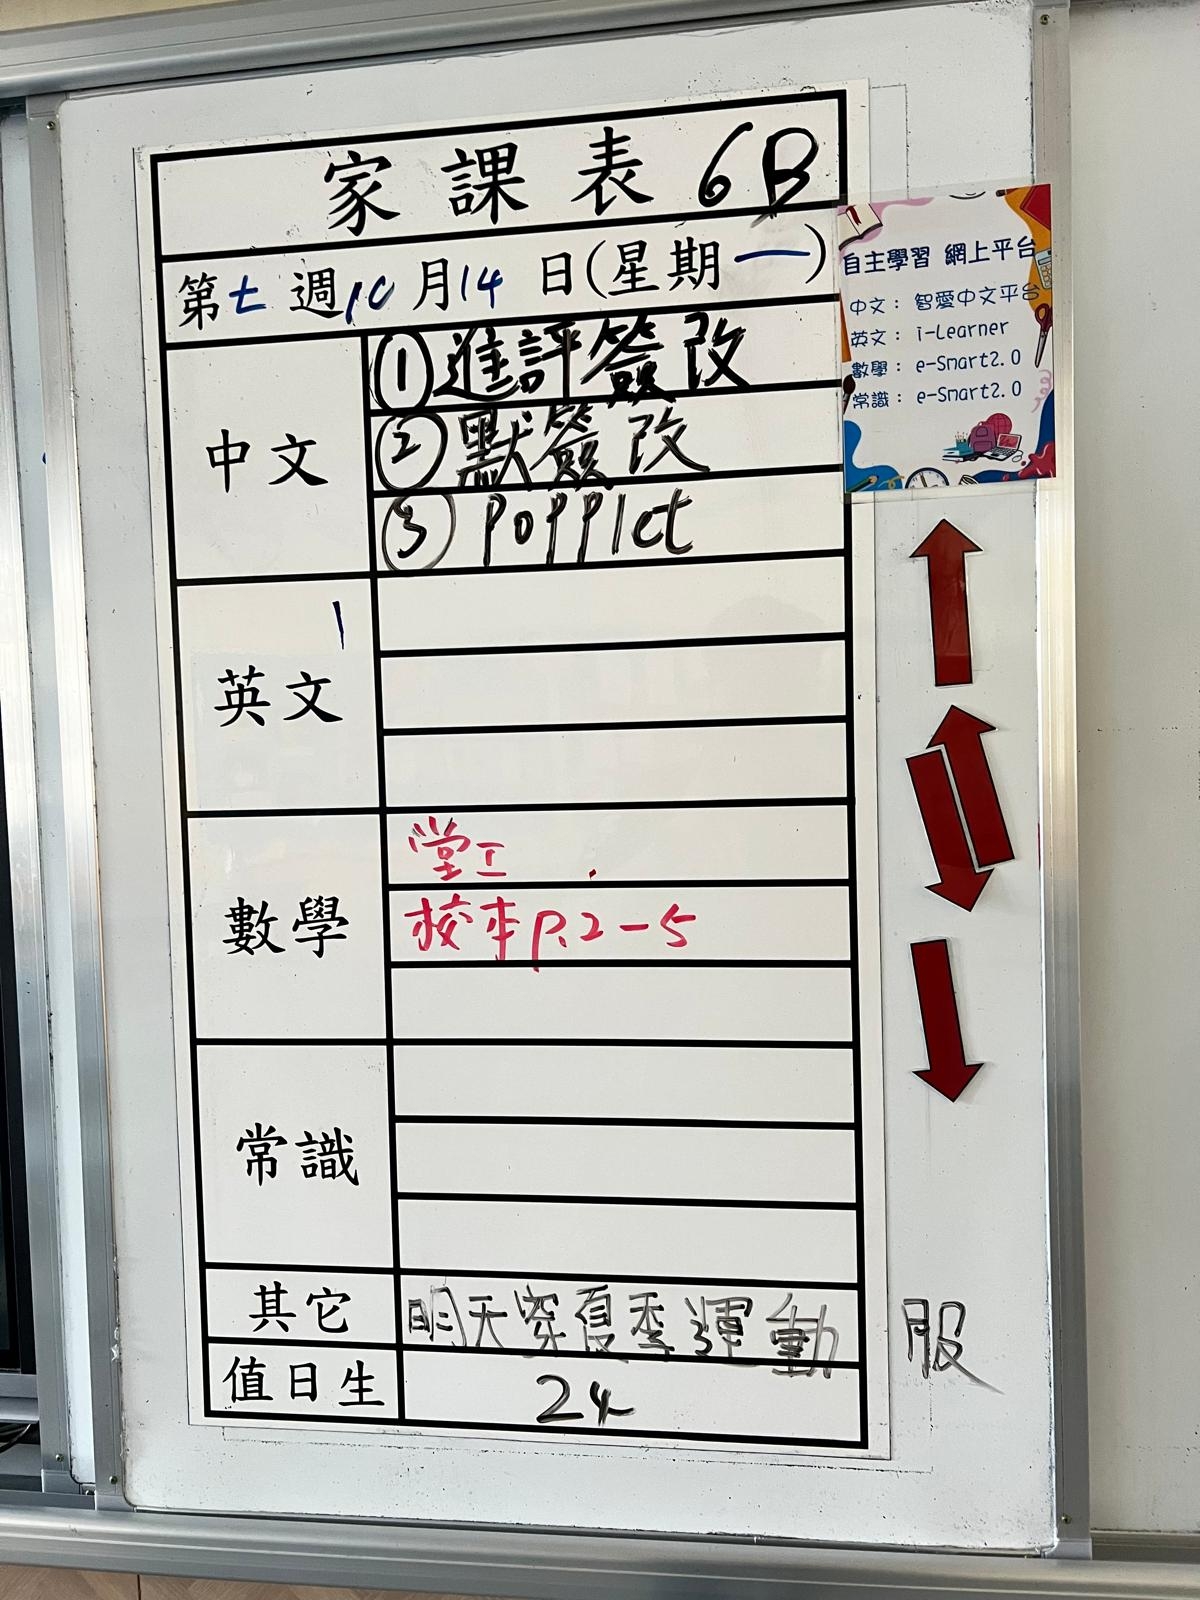 家課表 6B
第七週10月14日(星期一)
中文
①進評簽改
②默簽改
③popplet
英文
數學
堂工
校本P.2-5
常識
其它
明天穿夏季運動服
值日生
24
自主學習 網上平台
中文：智愛中文平台
英文：i-Learner
數學：e-Smart2.0
常識：e-Smart2.0